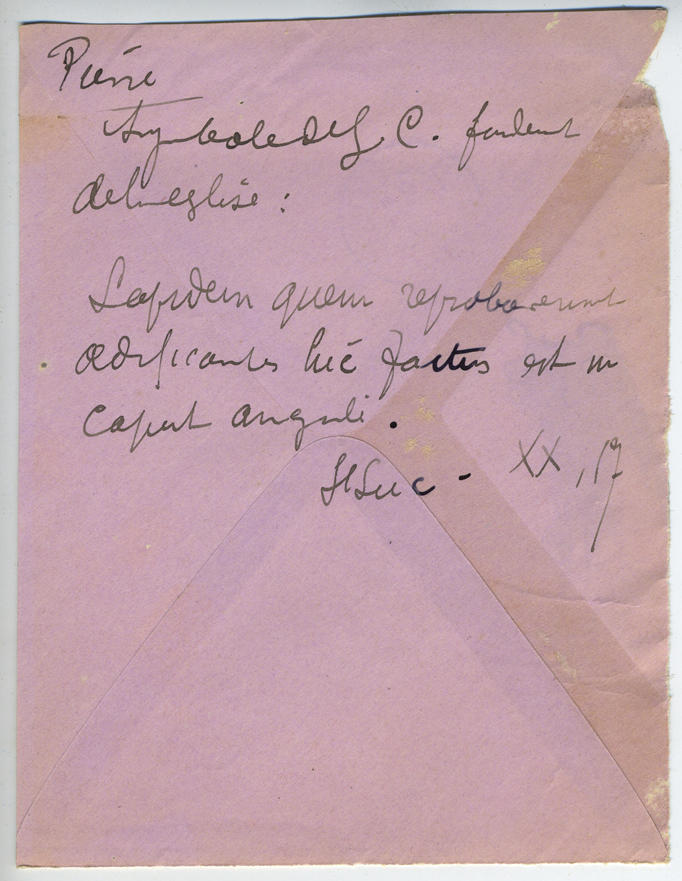 Pierre
Symbole de J. C. fondement
de l'eglise :
Lapidem quem reprobaverunt
aedificantes hic factus est in
caput anguli .
St Luc - XX, 17